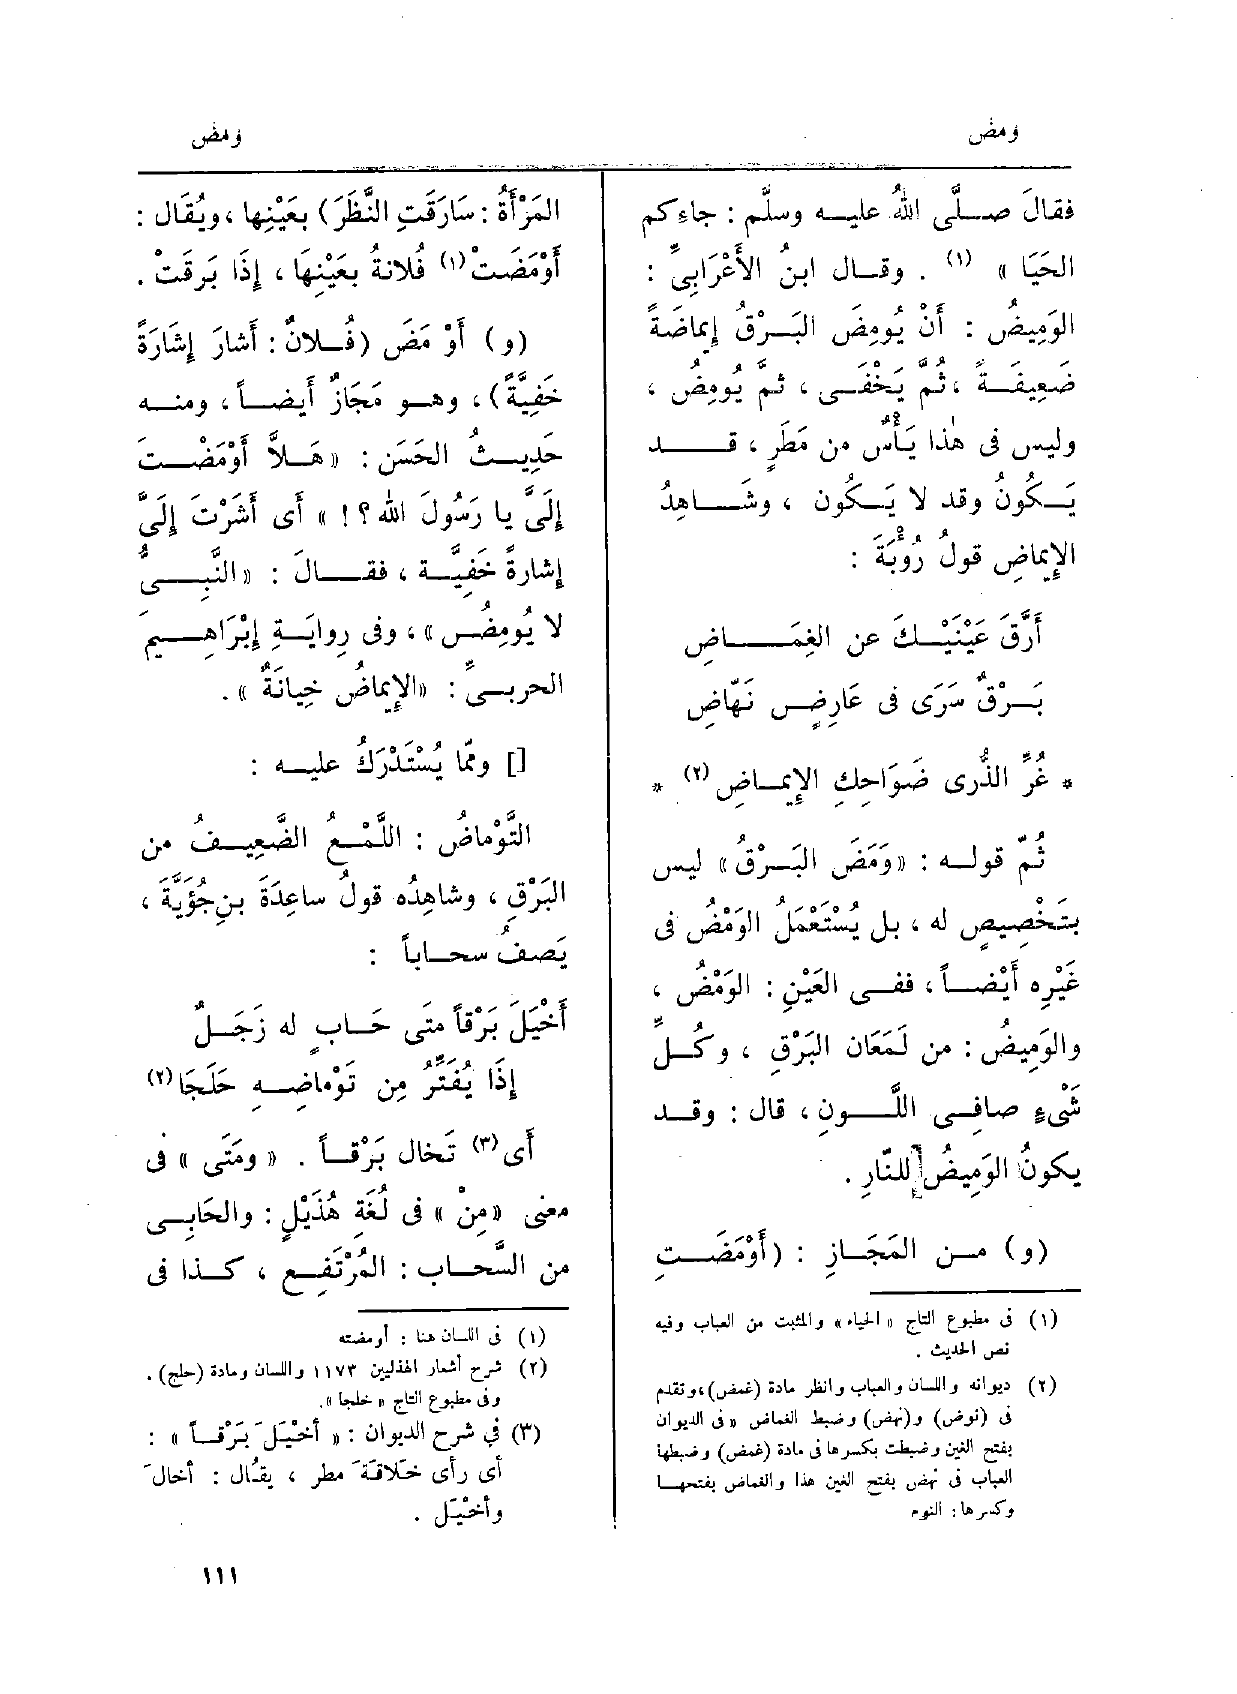 ومض
ومض
فقالَ صلَّى اللهُ عليه وسلَّم : جاءكم
الحَيَا » (١) . وقال ابنُ الأَعْرَابِىِّ :
الوَمِيضُ : أَنْ يُومِضَ البَرْقُ إِيماضَةً
ضَعِيفَةً ، ثُمَّ يَخْفَى ، ثمَّ يُومِضُ ،
وليس فى هٰذا يَأْسٌ من مَطَرٍ ، قد
يَكُونُ وقد لا يَكُون ، وشَاهِدُ
الإِيماضِ قولُ رُؤْبَةَ :
أَرَّقَ عَيْنَيْكَ عن الغِمَاضِ
بَرْقٌ سَرَى فى عَارِضٍ نَهّاضِ
* غُرُّ الذُّرى ضَوَاحِكِ الإِيماضِ (٢) *
ثُمَّ قوله : «وَمَضَ البَرْقُ» ليس
بتَخْصِيصٍ له ، بل يُسْتَعْمَلُ الوَمْضُ فى
غَيْرِه أَيْضاً ، ففى العَيْنِ : الوَمْضُ ،
والوَمِيضُ : من لَمَعَان البَرْقِ ، وكُلِّ
شَىْءٍ صافِى اللَّوْنِ ، قال : وقد
يكونُ الوَمِيضُ للنّارِ .
(و) من المَجَازِ : (أَوْمَضَت
(١) فى مطبوع التاج « الحياء » والمثبت من العباب وفيه
نص الحديث .
(٢) ديوانه واللسان والعباب وانظر مادة (غمض)، وتقدم
فى (نوض) و(نهض) وضبط الغماض « فى الديوان
بفتح الغين وضبطت بكسرها فى مادة (غمض) وضبطها
العباب فى نهض بفتح الغين هذا والغماض بفتحها
وكسرها : النوم
المَرْأَةُ : سَارَقَتِ النَّظَرَ) بعَيْنِها ، ويُقَال :
أَوْمَضَتْ (١) فُلانةُ بعَيْنِهَا ، إِذَا بَرَقَتْ .
(و) أَوْ مَضَ (فُلانٌ : أَشارَ إِشَارَةً
خَفِيَّةً) ، وهو مَجَازٌ أَيضاً ، ومنه
حَدِيثُ الحَسَن : « هَلاَّ أَوْمَضْتَ
إِلَىَّ يا رَسُولَ الله ؟ ! » أَى أَشَرْتَ إِلَىَّ
إِشارةً خَفِيَّة ، فقالَ : « النَّبِىُّ
لا يُومِضُ » ، وفى رِوايَةِ إِبْرَاهِيمَ
الحربىِّ : «الإِيماضُ خِيانَةٌ » .
[] وممّا يُسْتَدْرَكُ عليه :
التَّوْماضُ : اللَّمْعُ الضَّعِيفُ من
البَرْقِ ، وشاهِدُه قولُ ساعِدَةَ بنِ جُؤَيَّةَ ،
يَصفُ سحاباً :
أَخْيَلَ بَرْقاً متى حَابٍ له زَجَلٌ
إِذَا يُفَتِّرُ مِن تَوْماضِهِ حَلَجَا (٢)
أَى (٣) تَخال بَرْقاً . « ومَتَى » فى
معنى «مِنْ » فى لُغَةِ هُذَيْلٍ : والحَابِى
من السَّحَاب : المُرْتَفِع ، كذا فى
(١) فى اللسان هنا : أومضته
(٢) شرح أشعار الهذليين ١١٧٣ واللسان ومادة (حلج) .
وفى مطبوع التاج « خلجا ».
(٣) فى شرح الديوان : « أَخْيَلَ بَرْقاً » :
أى رأى خَلاقَةَ مطر ، يقال : أخالَ
وأَخْيَل .
١١١